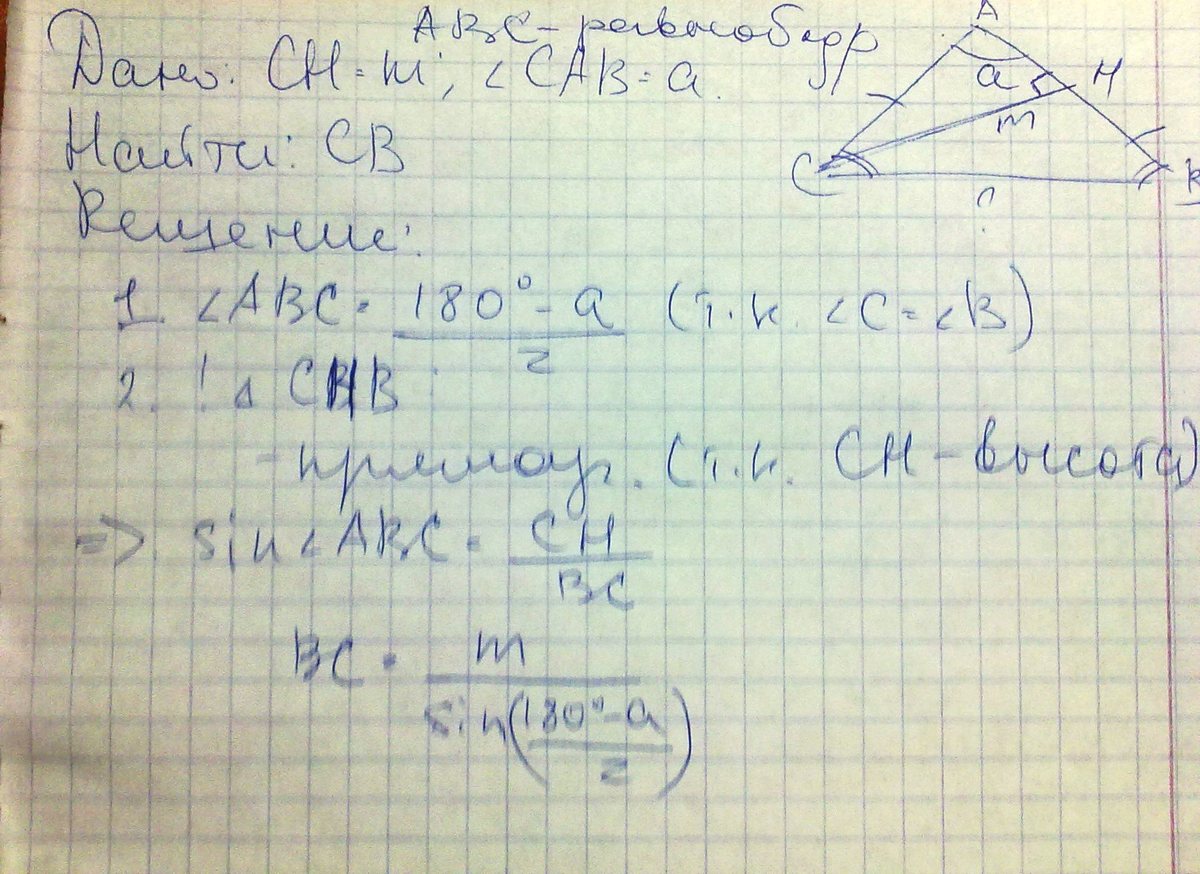 ABC - равнобедр
Дано: CH = m; ∠CAB = a.
Найти: CB
Решение:
1. ∠ABC = (180° - a)/2 (т.к. ∠C = ∠B)
2. ! Δ CHB
- прямоуг. (т.к. CH - высота)
=> sin∠ABC = CH/BC
BC = m/sin((180° - a)/2)
A
a
H
m
C
B